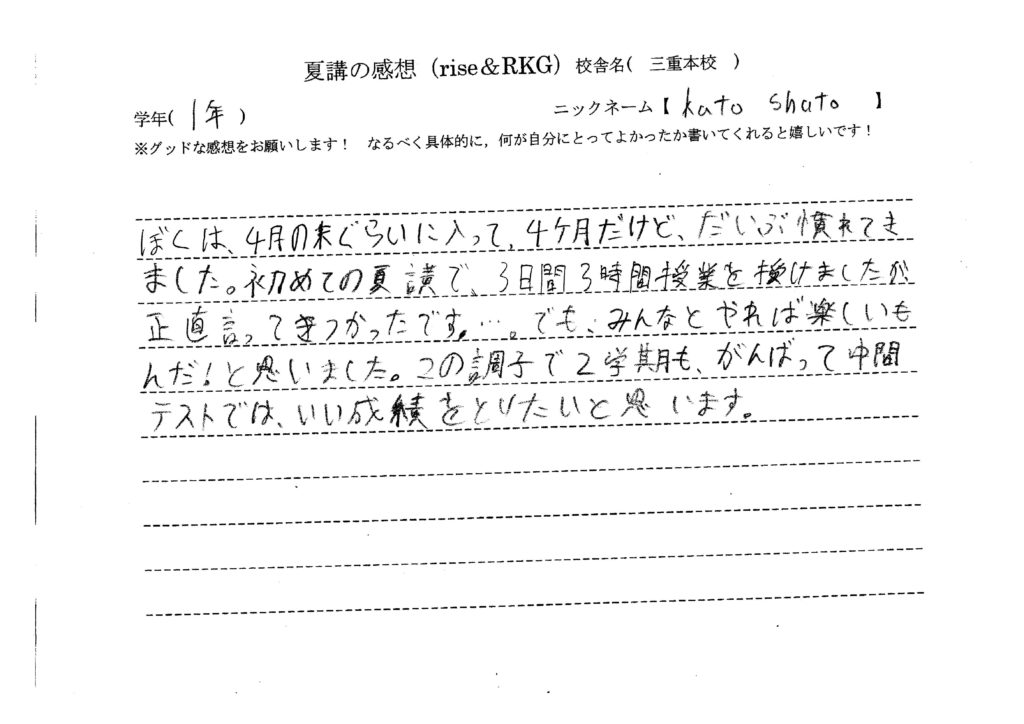 夏講の感想（rise＆RKG）校舎名(　三重本校　)
学年( 1年 )
ニックネーム【 kato shato 】
※グッドな感想をお願いします！　なるべく具体的に，何が自分にとってよかったか書いてくれると嬉しいです！
ぼくは、4月の末ぐらいに入って、4ケ月だけど、だいぶ慣れてき
ました。初めての夏講で、3日間3時間授業を受けましたが、
正直言ってきつかったです。…。でも、みんなとやれば楽しいも
んだ！と思いました。この調子で2学期も、がんばって中間
テストでは、いい成績をとりたいと思います。